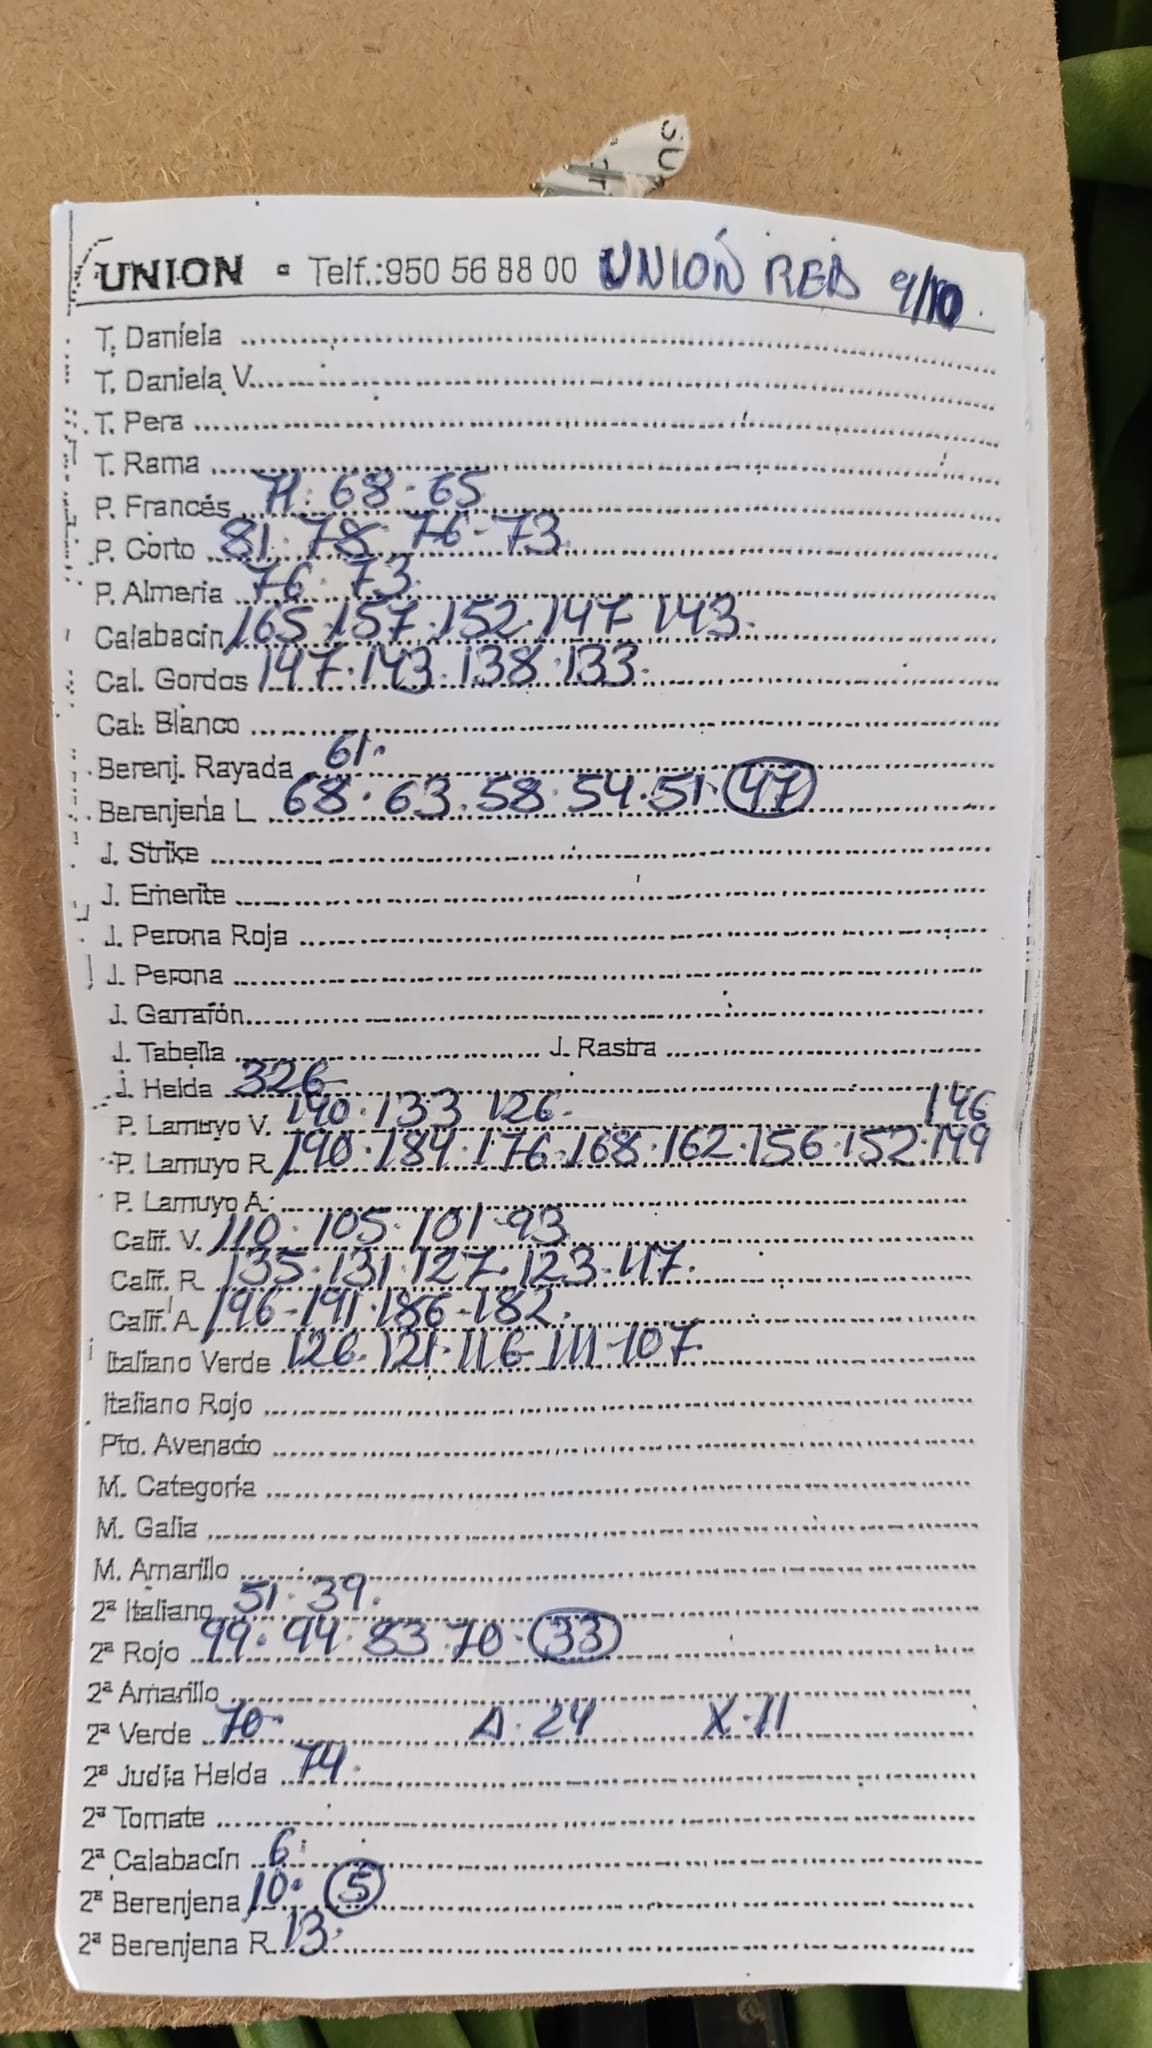 UNION · Telf.:950 56 88 00 UNIÓN RED 9/10
T. Daniela
T. Daniela V.
T. Pera
T. Rama
P. Francés 71. 68. 65
P. Corto 81. 78. 76-73
P. Almeria 76. 73.
Calabacín 165.157.152.147 143.
Cal. Gordos 147.143.138.133.
Cal. Blanco
Berenj. Rayada 61.
Berenjena L 68.63.58.54.51.47
J. Strike
J. Emerite
J. Perona Roja
J. Perona
J. Garrafón
J. Tabella J. Rastra
J. Helda 326
P. Lamuyo V. 140.133 126. 146
P. Lamuyo R 190.184.176.168.162.156.152.149
P. Lamuyo A.
Calif. V. 110.105.101-93
Calif. R 135.131.127.123-117.
Calif. A. 196-191.186-182.
Italiano Verde 126.121.116-111-107.
Italiano Rojo
Pto. Avenado
M. Categoría
M. Galia
M. Amarillo
2ª Italiano 51.39.
2ª Rojo 99.94.83.70.33
2ª Amarillo
2ª Verde 70. A.24 X.11
2ª Judía Helda 74.
2ª Tomate
2ª Calabacín 6
2ª Berenjena 10. 5
2ª Berenjena R 13.